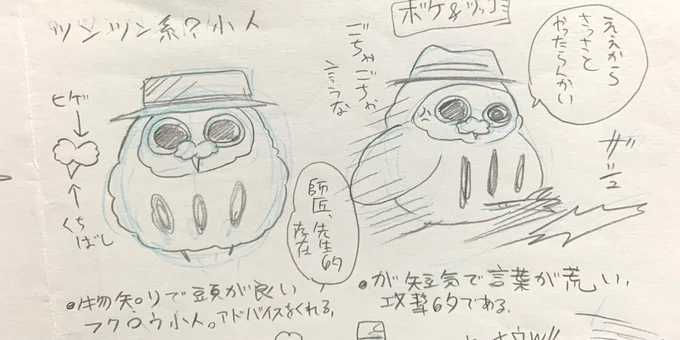 ツンツン系?小人
ボケ&ツッコミ
ヒゲ
くちばし
師匠、先生的
存在
●物知りで頭が良い
フクロウ小人。アドバイスをくれる。
ごちゃごちゃ
言うな
ええから
さっさと
やったらんかい
ザッ
●が短気で言葉が荒い。
攻撃的である。